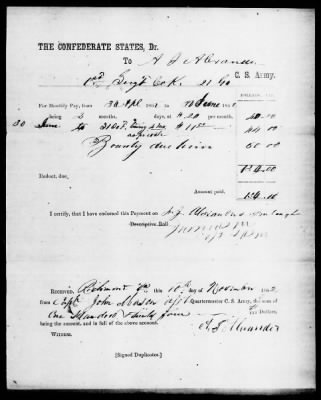 THE CONFEDERATE STATES, Dr.
To A J Alexander
Sergt Co K. 21 Ga C. S. Army,
DOLLS. CTS.
For Monthly Pay, from 30 Apl 186 to June 186
being 2 months, days, at $ 20 40.00
30 June to 31 Oct. being 4 mos $11 44.00
Bounty due him 50.00
Deduct, due, 134.00
Amount paid, 134.00
I certify, that I have endorsed this Payment on A. J. Alexanders
Descriptive Roll.
RECEIVED, Richmond Va this 10th day of November 186
from Capt John Quartermaster C. S. Army, the sum of
One Hundred & thirty four Dollars,
being the amount, and in full of the above account.
WITNESS. A J Alexander
[Signed Duplicates.]